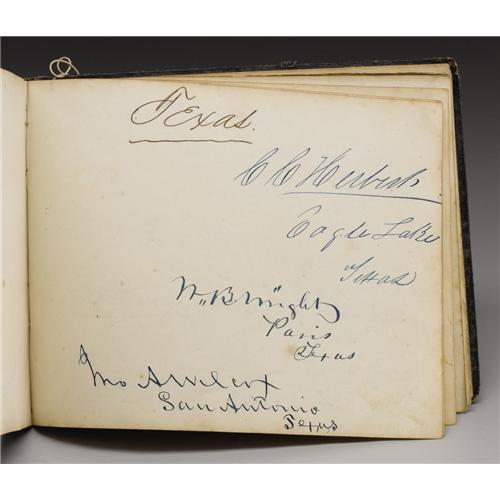 Texas.
C C Herbert
Eagle Lake
Texas
Wm B Wright
Paris
Texas
Jno A Wilcox
San Antonio
Texas